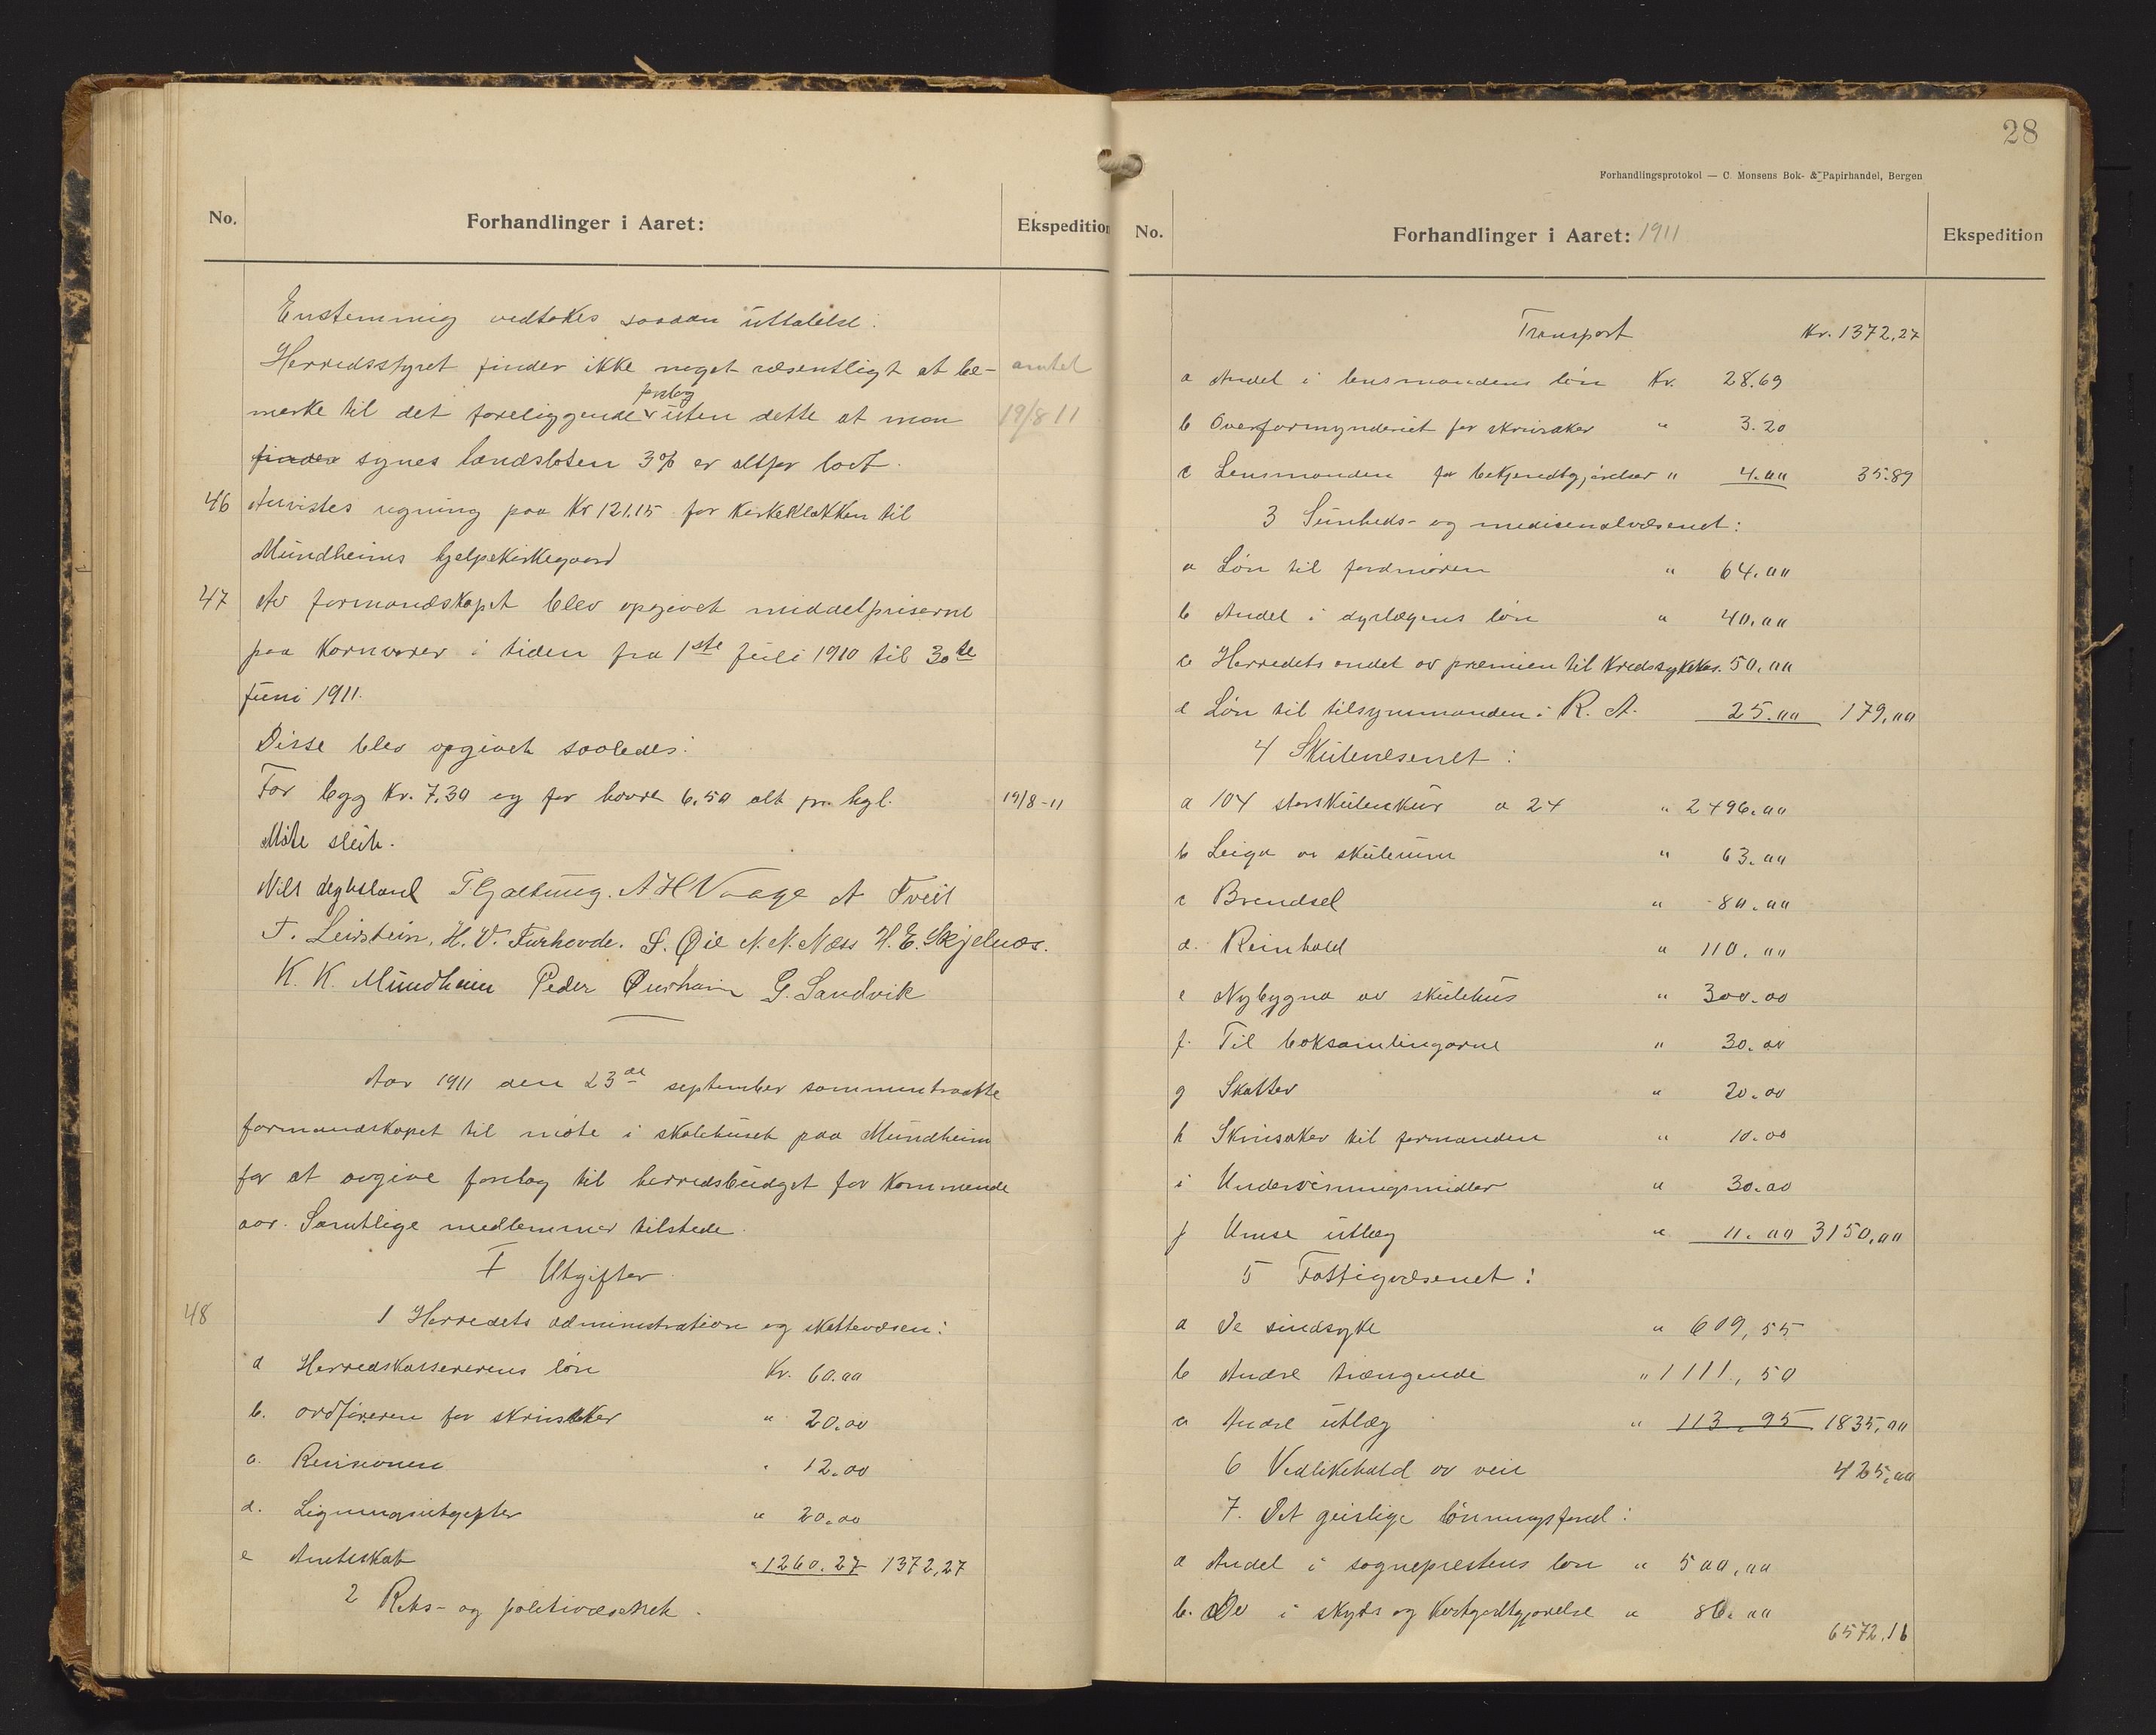 No. Forhandlinger i Aaret: Ekspedition
Enstemmig vedtokes saadan uttalelse:
Herredsstyret finder ikke noget væsentligt at be-
amtet
forslag
merke til det foreliggende uten dette at man
19/8 11
finder synes landsloten 3% er altfor lavt.
46 Anvistes regning paa Kr 121.15 for kirkeklokken til
Mundheims hjelpekirkegaard
47 Av formandskapet blev opgivet middelpriserne
paa kornvarer i tiden fra 1ste juli 1910 til 30te
juni 1911.
Disse blev opgivet saaledes:
For bygg Kr. 7,30 og for havre 6,50 alt pr. hgl.
19/8-11
Møte slut.
Nils T Gjaltung. A H Vaage A Tveit
T. Leirstein, H. V. Furhovde. S. Øie N. N. Næss H. E. Skjelnæs.
K. K. Mundheim Peder G. Sandvik
Aar 1911 den 23de september sammentraadte
formandskapet til møte i skolehuset paa Mundheim
for at avgive forslag til herredsbudget for kommende
aar. Samtlige medlemmer tilstede.
I Utgifter
48
1 Herredets administration og skattevæsen:
a Herredskassererens løn Kr. 60.00
b. ordføreren for skrivsaker " 20.00
c. Revisionen " 12.00
d. Ligningsutgifter " 20.00
e Amtsskat " 1260.27 1372,27
2 Rets- og politivæsenet.
28
Forhandlingsprotokol — C. Monsens Bok- & Papirhandel, Bergen
No. Forhandlinger i Aaret: 1911 Ekspedition
Transport Kr. 1372,27
a Andel i lensmandens løn Kr. 28.69
b Overformynderiet for skrivsaker " 3.20
c Lensmanden for bekjendtgjørelser " 4.00 35.89
3 Sunheds- og medisenalvæsenet:
a Løn til jordmoren " 64.00
b Andel i dyrlægens løn " 40.00
c Herredets andel av præmien til Kredssykekas. 50.00
d Løn til tilsynsmanden i R. A. 25.00 179,00
4 Skulevæsenet:
a 104 storskulevikur a 24 " 2496.00
b Leiga av skulerum " 63.00
c Brendsel " 80.00
d. Reinhald " 110.00
e Nybygna av skulehus " 300.00
f. Til boksamlingarne " 30.00
g Skatter " 20.00
h Skrivsaker til formanden " 10.00
i Undervisningsmidler " 30.00
j Umse utlæg " 11.00 3150,00
5 Fattigvæsenet:
a De sindsyke " 609,55
b Andre trængende " 1111,50
c Andre utlæg " 113,95 1835,00
6 Vedlikehold av veie 425,00
7. Det geislige lønningsfond:
a Andel i sogneprestens løn " 500,00
b. Do i skyds og kostgodtgjørelse " 86.00
6572,16